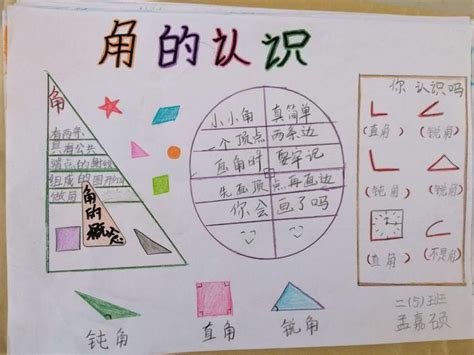 角的认识
角
有两条
具有公共
端点的射线
组成的图形叫
做角
角的概念
小小角 真简单
一个顶点 两条边
直角时 要牢记
先画顶点 再画边
你会 画了吗
你认识吗
(直角) (锐角)
(钝角) (直角)
(直角) (不是角)
钝角 直角 锐角
二(5)班
孟嘉硕